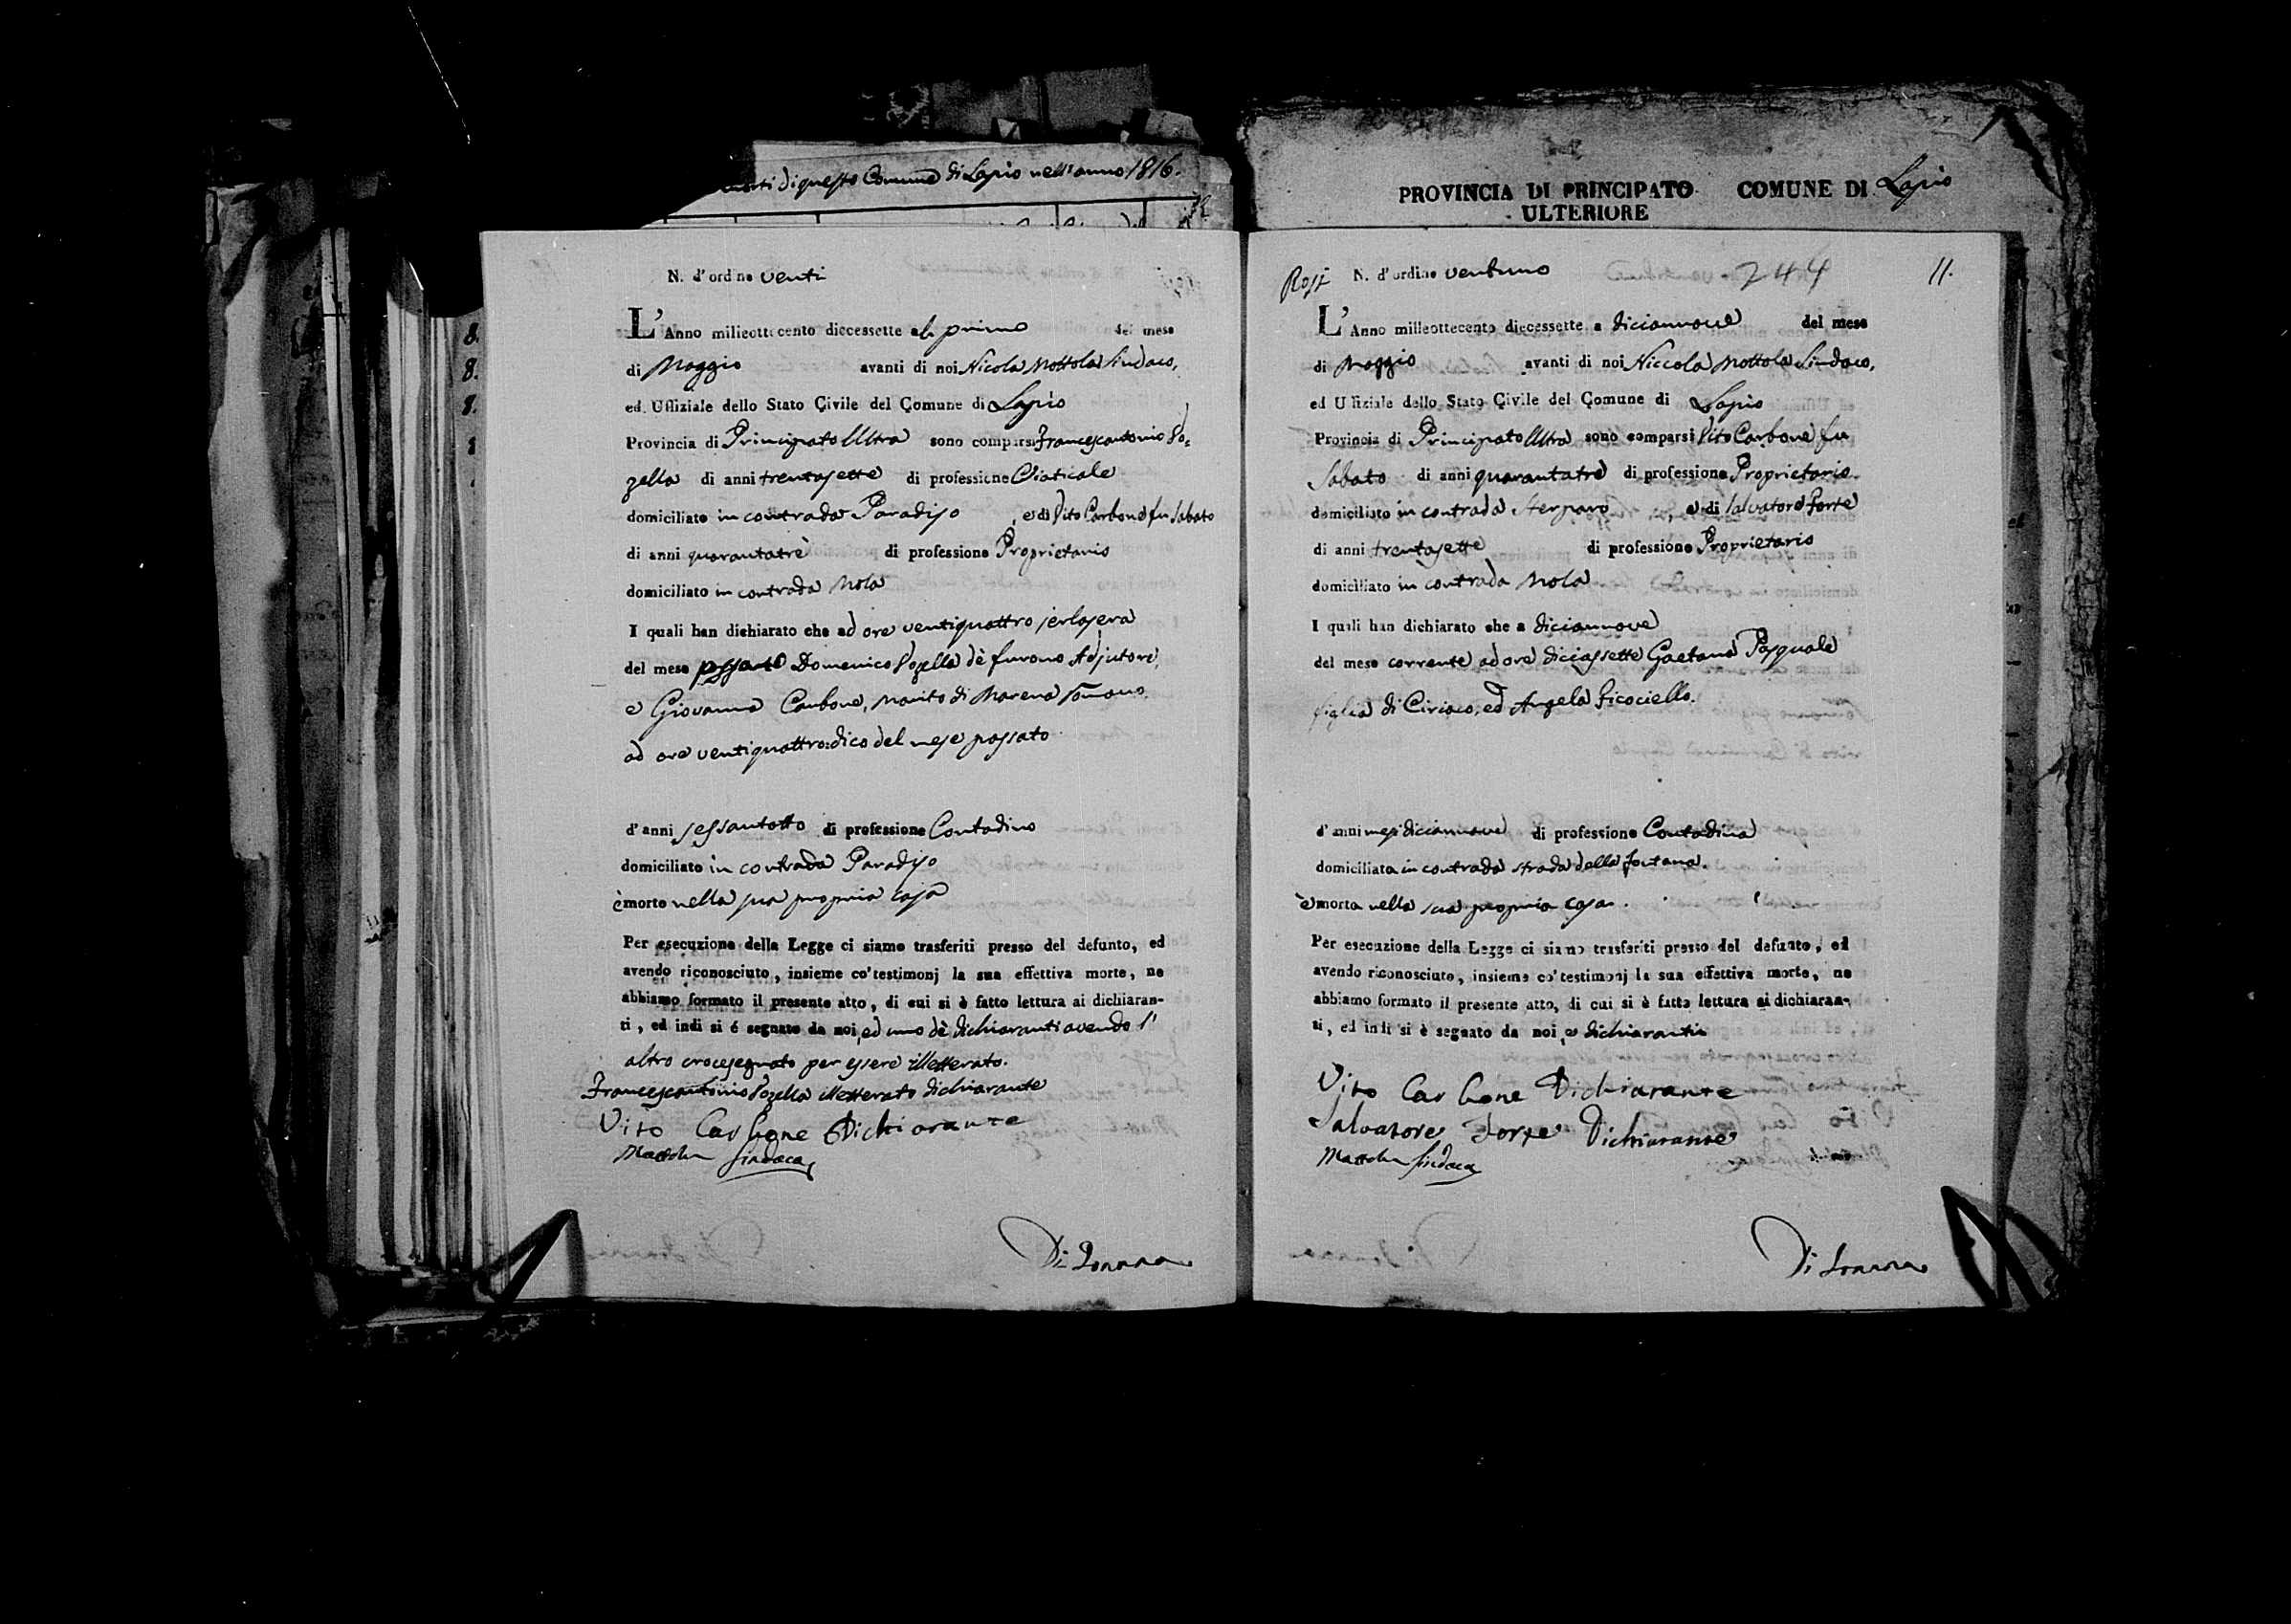 morti di questo Comune di Lapio nell'anno 1816.
PROVINCIA DI PRINCIPATO COMUNE DI Lapio
ULTERIORE
N. d'ordine venti
L'Anno milleottocento diecessette al primo del mese
di Maggio avanti di noi Nicola Mottola Sindaco,
ed Uffiziale dello Stato Civile del Comune di Lapio
Provincia di Principato Ultra sono comparsi Francescantonio Po=
zella di anni trentasette di professione Viaticale
domiciliato in contrada Paradiso, e di Vito Carbone fu Sabato
di anni quarantatrè di professione Proprietario
domiciliato in contrada Mola
I quali han dichiarato che ad ore ventiquattro jerlasera
del mese passato Domenico Pozella dè furono Adjutore,
e Giovanna Carbone, marito di Morena Romano
ad ore ventiquattro: dico del mese passato
d'anni sessantotto di professione Contadino
domiciliato in contrada Paradiso
è morto nella sua propria casa
Per esecuzione della Legge ci siamo trasferiti presso del defunto, ed
avendo riconosciuto, insieme co'testimonj la sua effettiva morte, ne
abbiamo formato il presente atto, di cui si è fatto lettura ai dichiaran-
ti, ed indi si é segnato da noi, ed uno dè dichiaranti avendo l'
altro crocesegnato per essere illetterato.
Francescantonio Pozella illetterato dichiarante
Vito Carbone Dichiarante
Mottola Sindaco
Rosj N. d'ordine ventuno 244 11.
L'Anno milleottocento diecessette a diciannove del mese
di Maggio avanti di noi Niccola Mottola Sindaco,
ed Uffiziale dello Stato Civile del Comune di Lapio
Provincia di Principato Ultra sono comparsi Vito Carbone fu
Sabato di anni quarantatrè di professione Proprietario
domiciliato in contrada Sterparo, e di Salvatore Forte
di anni trentasette di professione Proprietario
domiciliato in contrada Mola
I quali han dichiarato che a diciannove
del mese corrente ad ore diciassette Gaetana Pasquale
figlia di Ciriaco, ed Angela Ficociello.
d'anni mesi diciannove di professione Contadina
domiciliata in contrada strada della fontana.
è morta nella sua propria casa.
Per esecuzione della Legge ci siamo trasferiti presso del defunto, ed
avendo riconosciuto, insieme co'testimonj la sua effettiva morte, ne
abbiamo formato il presente atto, di cui si è fatta lettura ai dichiaran-
ti, ed indi si è segnato da noi, e dichiaranti
Vito Carbone Dichiarante
Salvatore Forte Dichiarante
Mottola Sindaco